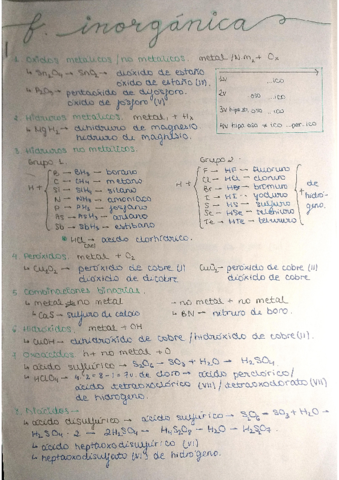 f. inorgánica
1. óxidos metálicos / no metálicos. metal /
↳ Sn₂O₄ → SnO₂ → dióxido de estaño
óxido de estaño (IV).
↳ P₂O₅ → pentaóxido de
óxido de fósforo (V)
1v ... ico
2v ... oso ... ico
3v hipo ... oso ... ico
4v hipo oso → ico ... per..ico
2. Hidruros metálicos. metal + H
↳ MgH₂ → dihidruro de magnesio
hidruro de magnesio.
3. Hidruros no metálicos.
Grupo 1.
H +
B → BH₃ → borano
C → CH₄ → metano
Si → SiH₄ → silano
N → NH₃ → amoniaco
P → PH₃ → fosfano
As → AsH₃ → arsano
Sb → SbH₃ → estibano
Grupo 2
H +
F → HF → fluoruro
Cl → HCl → cloruro
Br → HBr → bromuro
I → HI → yoduro
S → → sulfuro
Se → → seleniuro
Te → → telururo
+ de hidrógeno.
HCl → ácido clorhídrico.
4. Peróxidos. metal + O₂
↳ Cu₂O₂ → peróxido de cobre (I)
dióxido de dicobre
CuO₂ → peróxido de cobre (II)
dióxido de cobre
5. Combinaciones binarias.
→ metal + no metal
↳ CaS → sulfuro de calcio
→ no metal + no metal
↳ BN → nitruro de boro.
6. Hidróxidos. metal + OH
↳ → dihidróxido de cobre / hidróxido de cobre (II).
7. Oxoácidos h + no metal + O
↳ ácido sulfúrico → S₂O₆ → SO₃ + H₂O → H₂SO₄
↳ HClO₄ → de cloro → ácido perclórico /
ácido tetraoxoclórico (VII) / tetraoxoclorato (VII)
de hidrógeno.
↳ ácido disulfúrico → ácido sulfúrico → → SO₃ + H₂O →
H₂SO₄ · 2 → 2H₂SO₄ → H₄S₂O₈ - H₂O → H₂S₂O₇.
↳ ácido heptaoxodisulfúrico (VI)
↳ heptaoxodisulfato (VI) de hidrógeno.